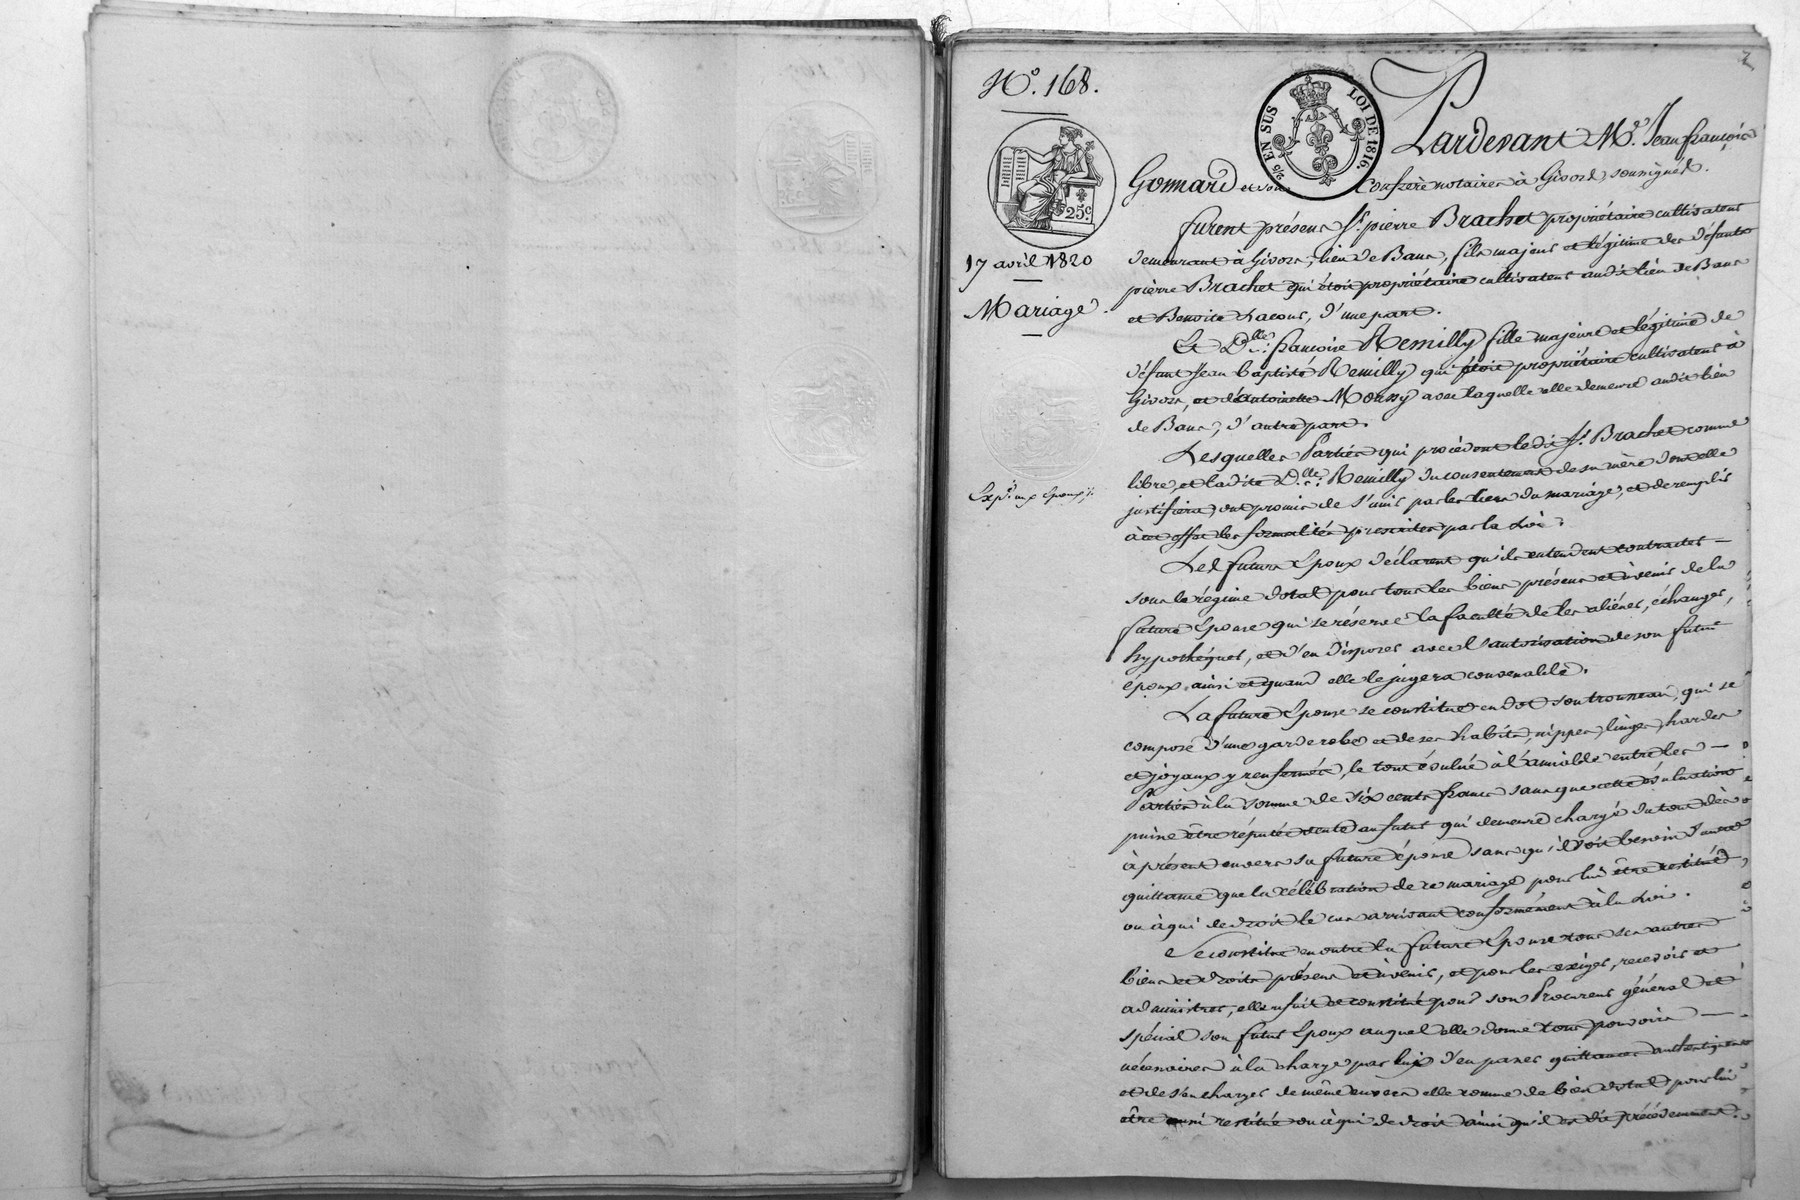 N.º 168.
2/5 EN SUS LOI DE 1816.
25 c.
17 avril 1820
Mariage.
Exp.on aux Epoux
Pardevant M.e Jean françois
Gonnard et son Confrère notaires à Givors, soussignés.
furent présens S.r pierre Brachet propriétaire cultivateur
demeurant à Givors, lieu de Bans, fils majeur et légitime des défunts
pierre Brachet qui étoit propriétaire cultivateur audit lieu de Bans
et Benoite Lacour, d'une part.
Et D.lle françoise Remilly fille majeure et légitime de
défunt Jean baptiste Remilly qui étoit propriétaire cultivateur à
Givors, et d'Antoinette Moussy avec laquelle elle demeure audit lieu
de Bans, d'autre part.
Lesquelles Parties qui procèdent ledit S.r Brachet comme
libre, et ladite D.lle Remilly du consentement de sa mère dont elle
justifiera, ont promis de s'unir par les liens du mariage, et de remplir
à cet effet les formalités prescrites par la Loi.
Les futurs Epoux déclarent qu'ils entendent contracter —
sous le régime dotal pour tous les biens présens et à venir de la
future Epouse qui se réserve la faculté de les aliéner, échanger,
hypothéquer, et d'en disposer avec l'autorisation de son futur
époux ainsi et quand elle le jugera convenable.
La future Epouse se constitue en dot son trousseau, qui se
compose d'une garderobe et de ses habits, nippes, linges, hardes
et joyaux y renfermés, le tout évalué à l'amiable entre les —
Parties à la somme de six cents francs sans que cette évaluation
puisse être réputée vente au futur qui demeure chargé du tout dès
à présent envers sa future épouse sans qu'il soit besoin d'autre
quittance que la célébration de ce mariage pour lui être restitué,
ou à qui de droit le cas arrivant conformément à la Loi.
Se constitue en outre la future Epouse tous ses autres
biens et droits présens et à venir, et pour les exiger, recevoir et
administrer, elle a fait et constitué pour son Procureur général et
spécial son futur Epoux auquel elle donne tous pouvoirs —
nécessaires à la charge par lui d'en passer quittances authentiques
et de s'en charger de même envers elle comme de bien dotal pour lui
être aussi restitué ou à qui de droit ainsi qu'il est dit précédemment.